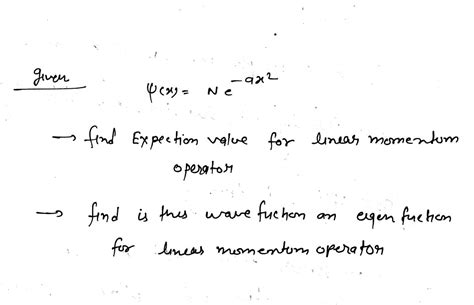 given
ψ(x) = N e^{-ax^2}
→ find Expection value for linear momentum
operator
→ find is this wave fuction an eigen fuction
for linear momentum operator